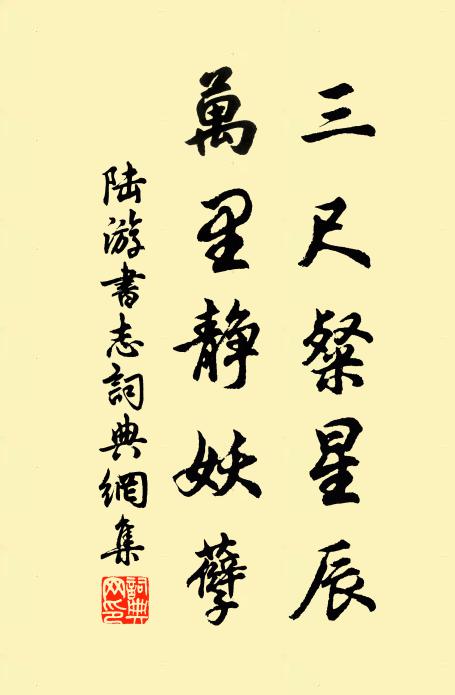 三尺粲星辰
萬里静妖孽
陆游書志詞典網集
詞典网印